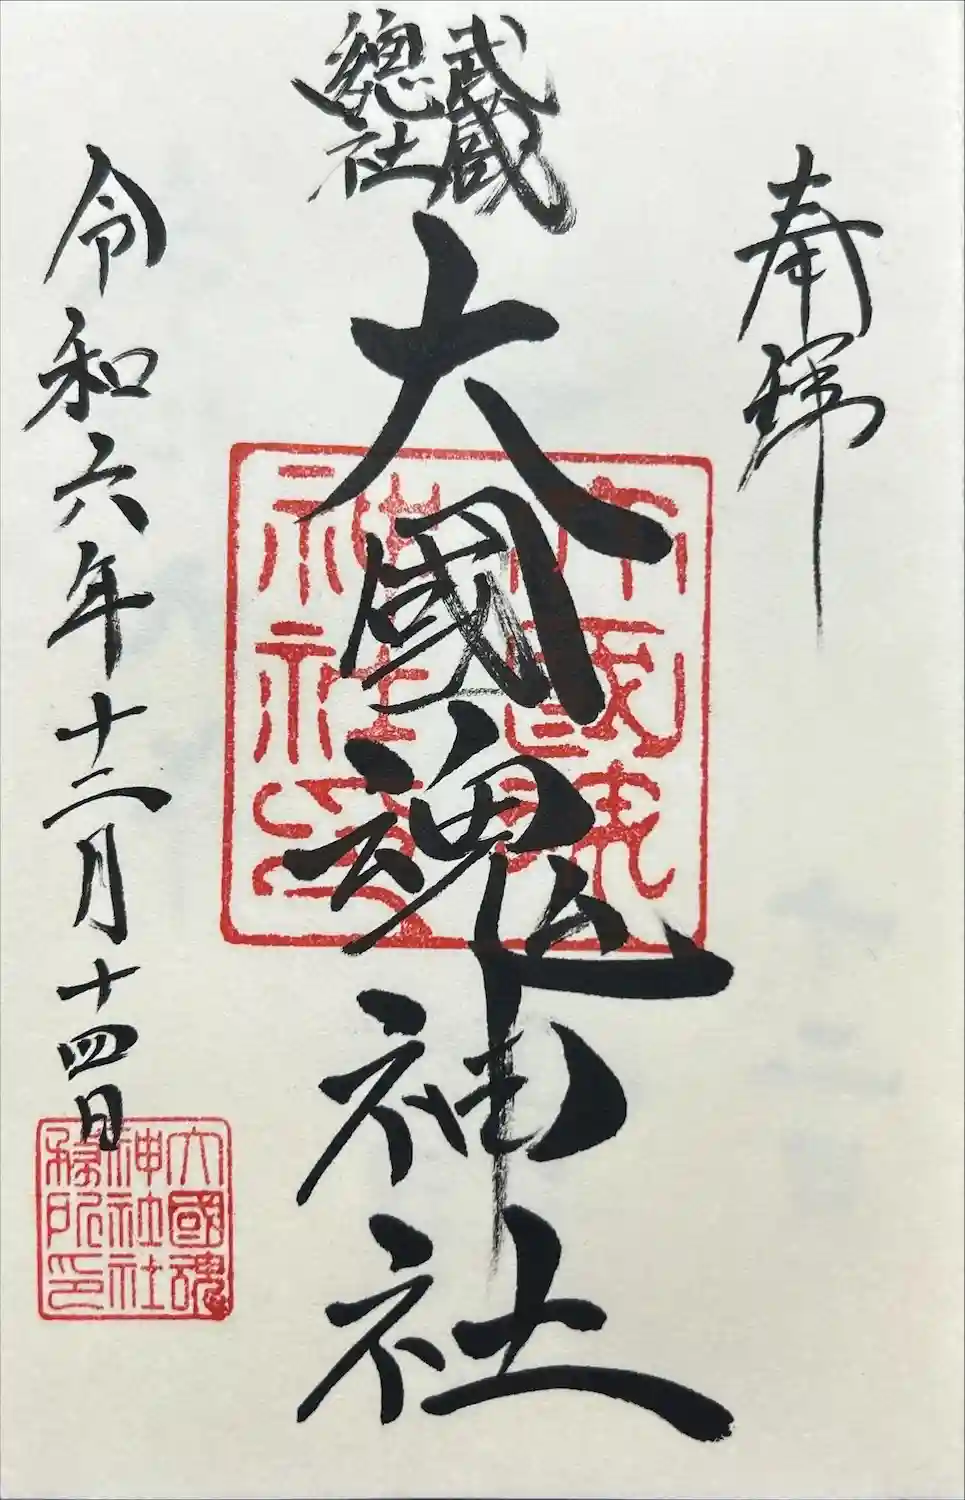 奉拝
武蔵
總社
大國魂神社
大國魂
神社印
令和六年十二月十四日
大國魂
神社社
務所印